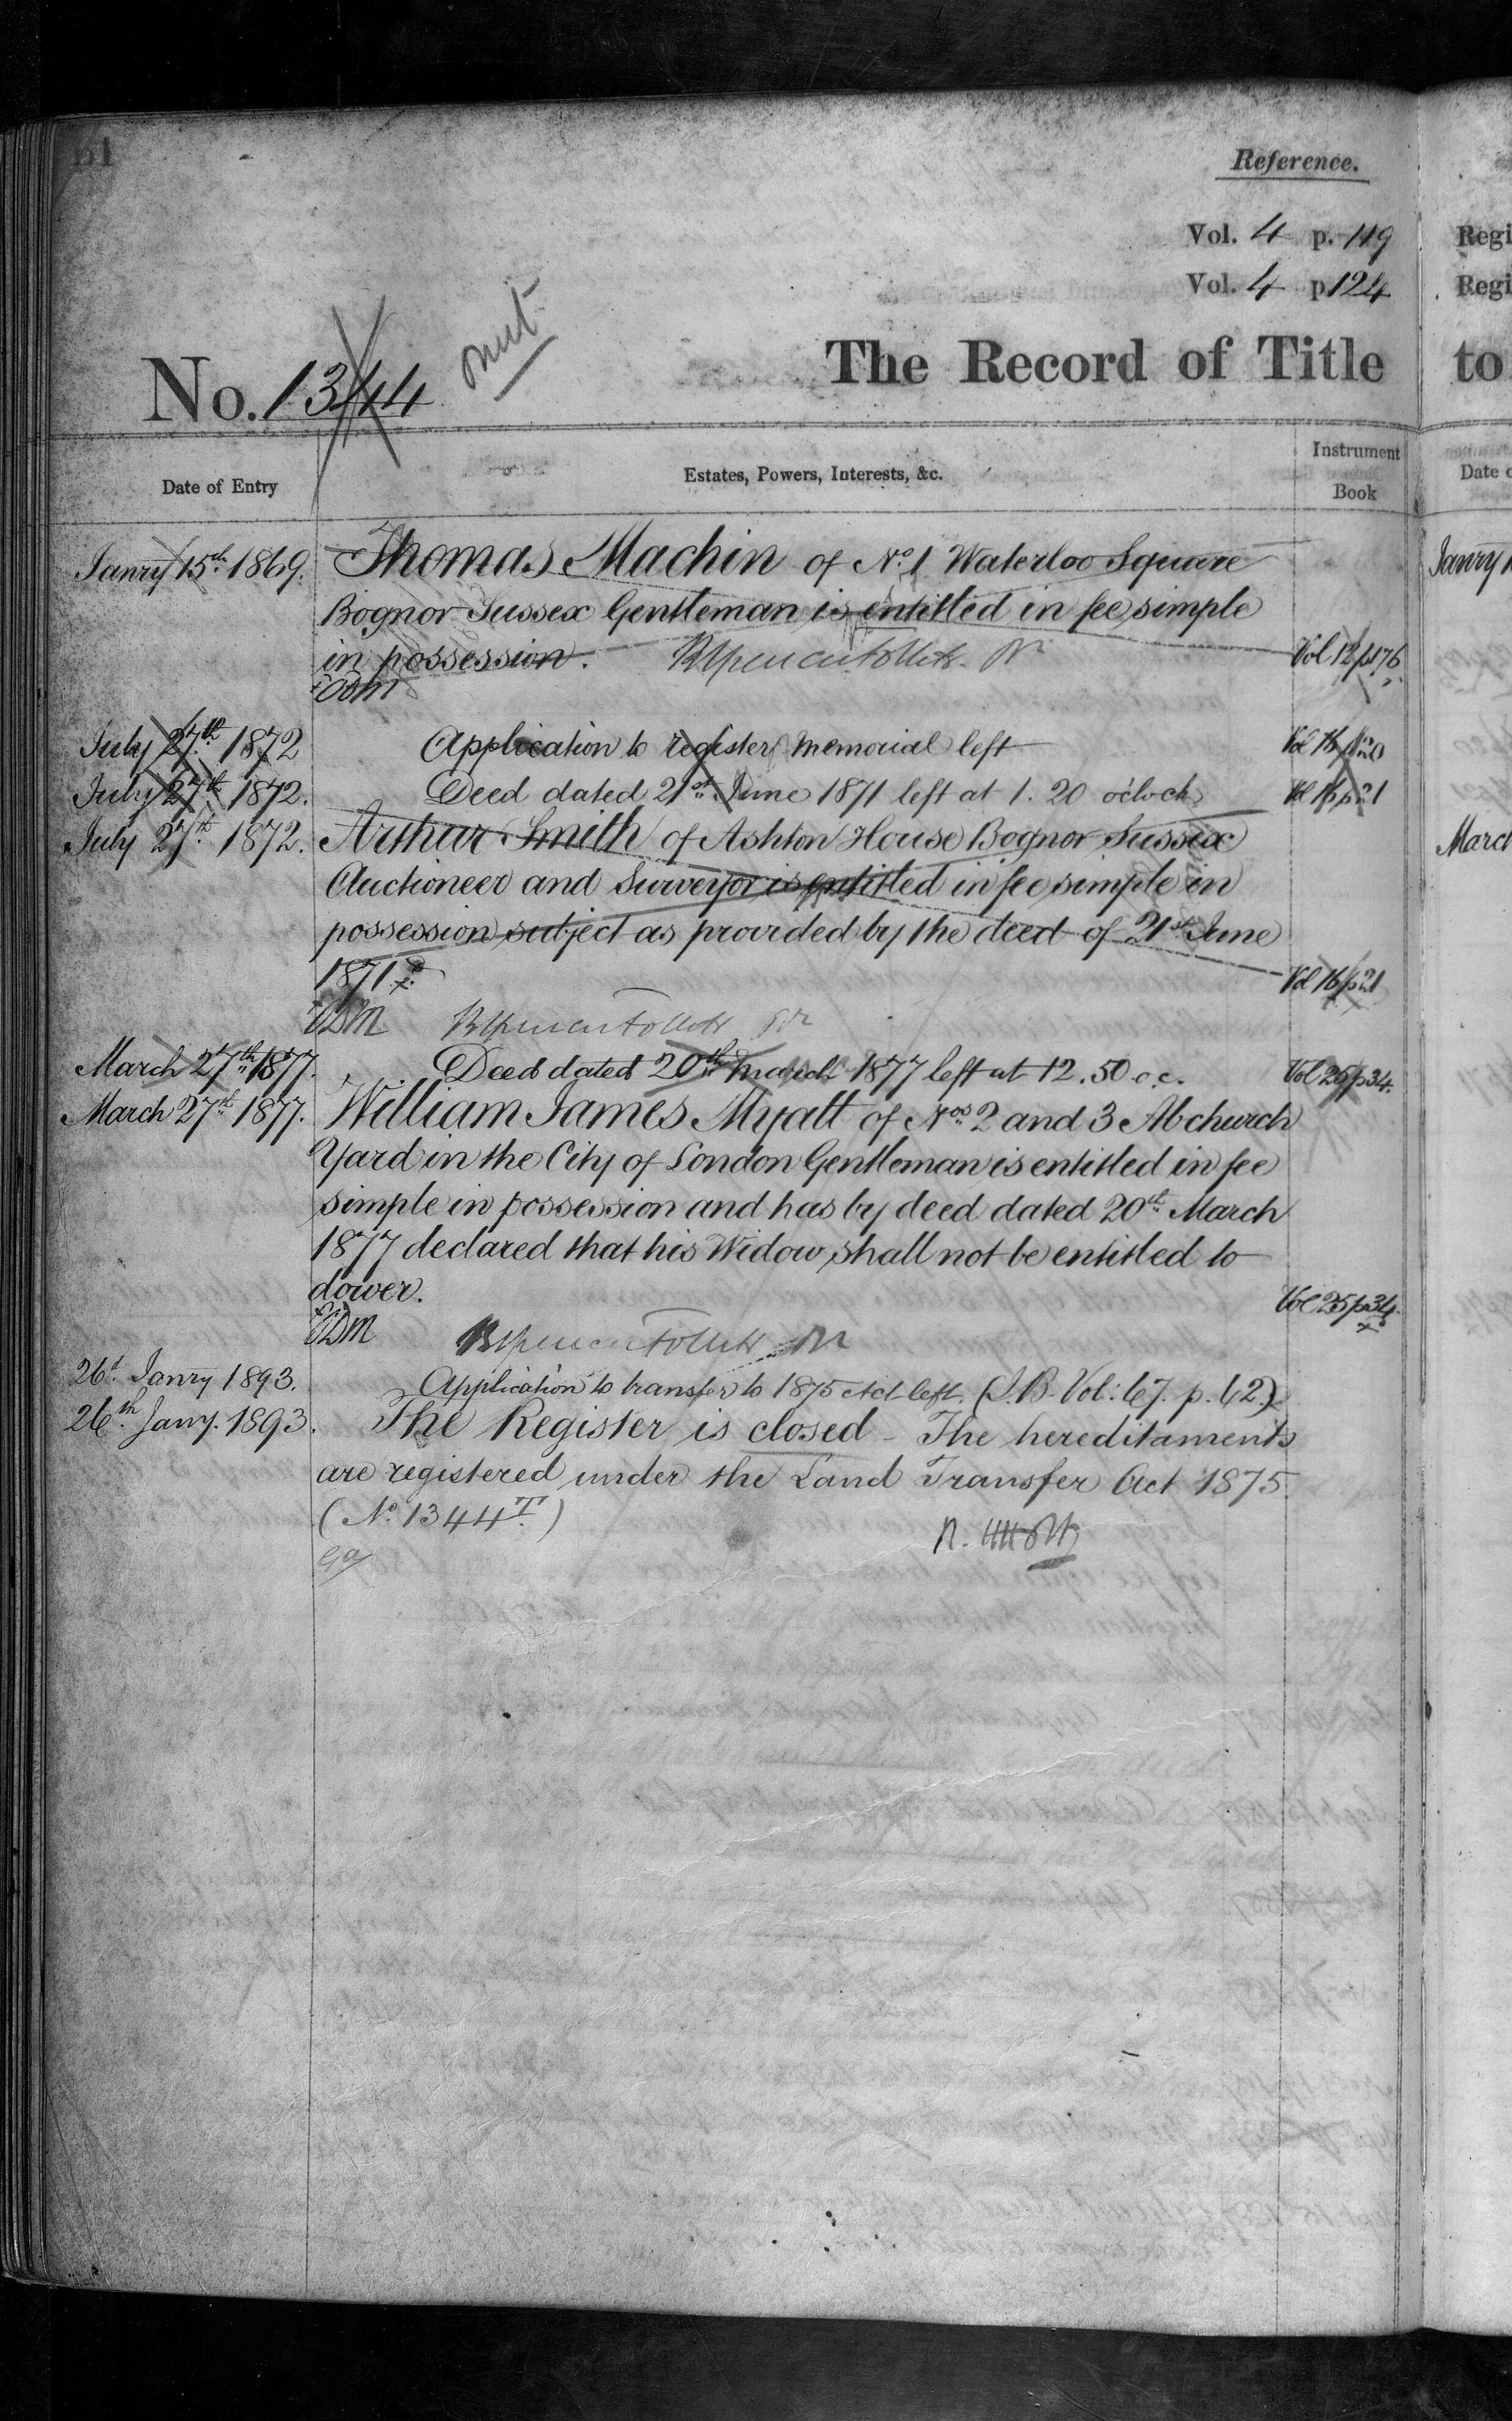 Reference.
Vol. 4 p. 119 Regi
Vol. 4 p 124 Regi
No. 1344 The Record of Title to
Date of Entry Estates, Powers, Interests, &c. Instrument Book Date
Janry 15th 1869. Thomas Machin of No. 1 Waterloo Square Janry
Bognor Sussex Gentleman is entitled in fee simple
in possession. Vol 12 p 176
July 27th 1872 Application to register memorial left Vol 16 p 20
July 27th 1872. Deed dated 21st June 1871 left at 1. 20 o'clock Vol 16 p 21
July 27th 1872. Arthur Smith of Ashton House Bognor Sussex March
Auctioneer and Surveyor is entitled in fee simple in
possession subject as provided by the deed of 21st June
1871. Vol 16 p 21
March 27th 1877. Deed dated 20th March 1877 left at 12.50 o.c. Vol 25 p 34.
March 27th 1877. William James Myatt of Nos. 2 and 3 Abchurch
Yard in the City of London Gentleman is entitled in fee
simple in possession and has by deed dated 20th March
1877 declared that his Widow shall not be entitled to
dower. Vol 25 p 34.
26th Janry 1893. Application to transfer to 1875 Act left. (I.B. Vol: 67. p. 62.)
26th Jany. 1893. The Register is closed - The hereditaments
are registered under the Land Transfer Act 1875.
(No. 1344T.)